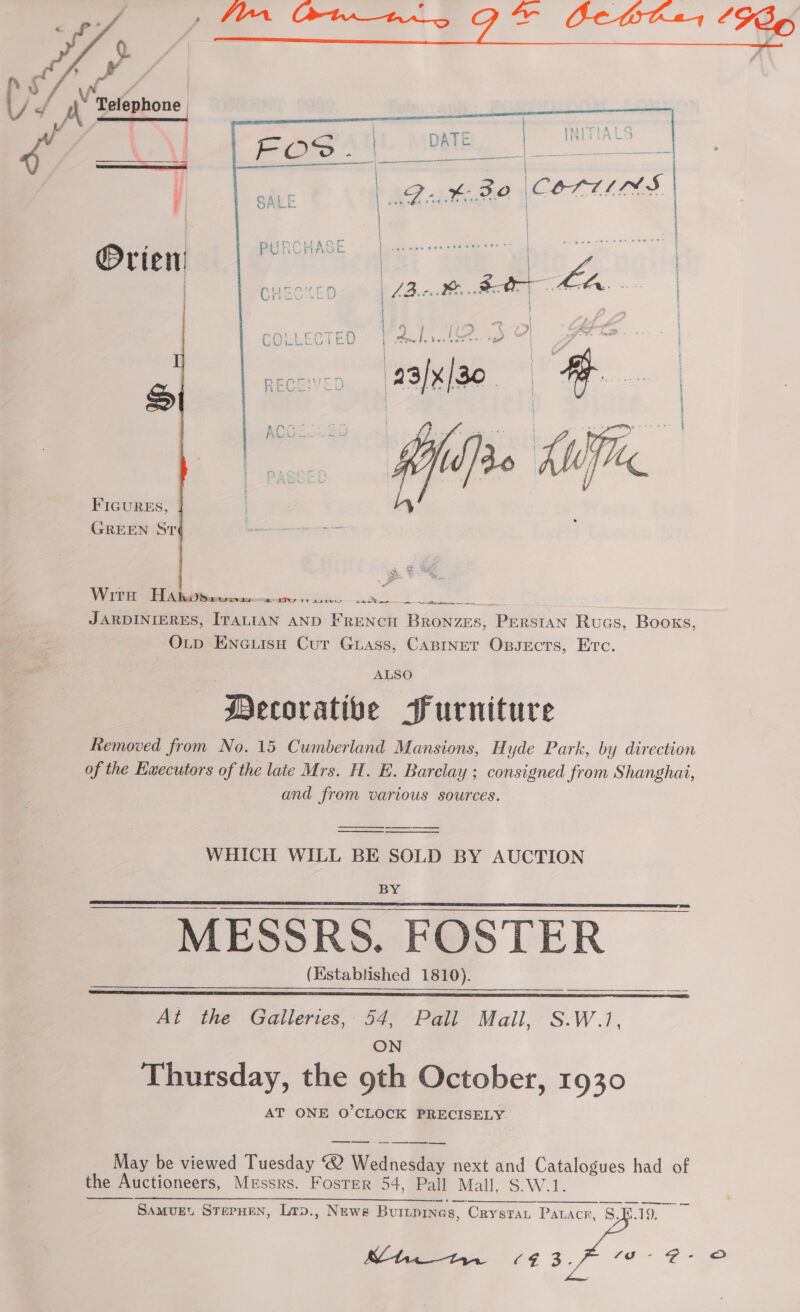 9th October 1930
Telephone
FOS. DATE INITIALS
SALE 9.X.30 Corlins
Orien
PURCHASE
CHECKED 13.X.30
COLLECTED 21.10.30
I
RECEIVED 23/X/30
S
PASSED
FIGURES,
GREEN ST
WITH HA
JARDINIERES, ITALIAN AND FRENCH BRONZES, PERSIAN RUGS, BOOKS,
OLD ENGLISH CUT GLASS, CABINET OBJECTS, ETC.
ALSO
Decorative Furniture
Removed from No. 15 Cumberland Mansions, Hyde Park, by direction
of the Executors of the late Mrs. H. E. Barclay; consigned from Shanghai,
and from various sources.
WHICH WILL BE SOLD BY AUCTION
BY
MESSRS. FOSTER
(Established 1810).
At the Galleries, 54, Pall Mall, S.W.1,
ON
Thursday, the 9th October, 1930
AT ONE O'CLOCK PRECISELY
May be viewed Tuesday & Wednesday next and Catalogues had of
the Auctioneers, MESSRS. FOSTER 54, Pall Mall, S.W.1.
SAMUEL STEPHEN, LTD., NEWS BUILDINGS, CRYSTAL PALACE, S.E.19.